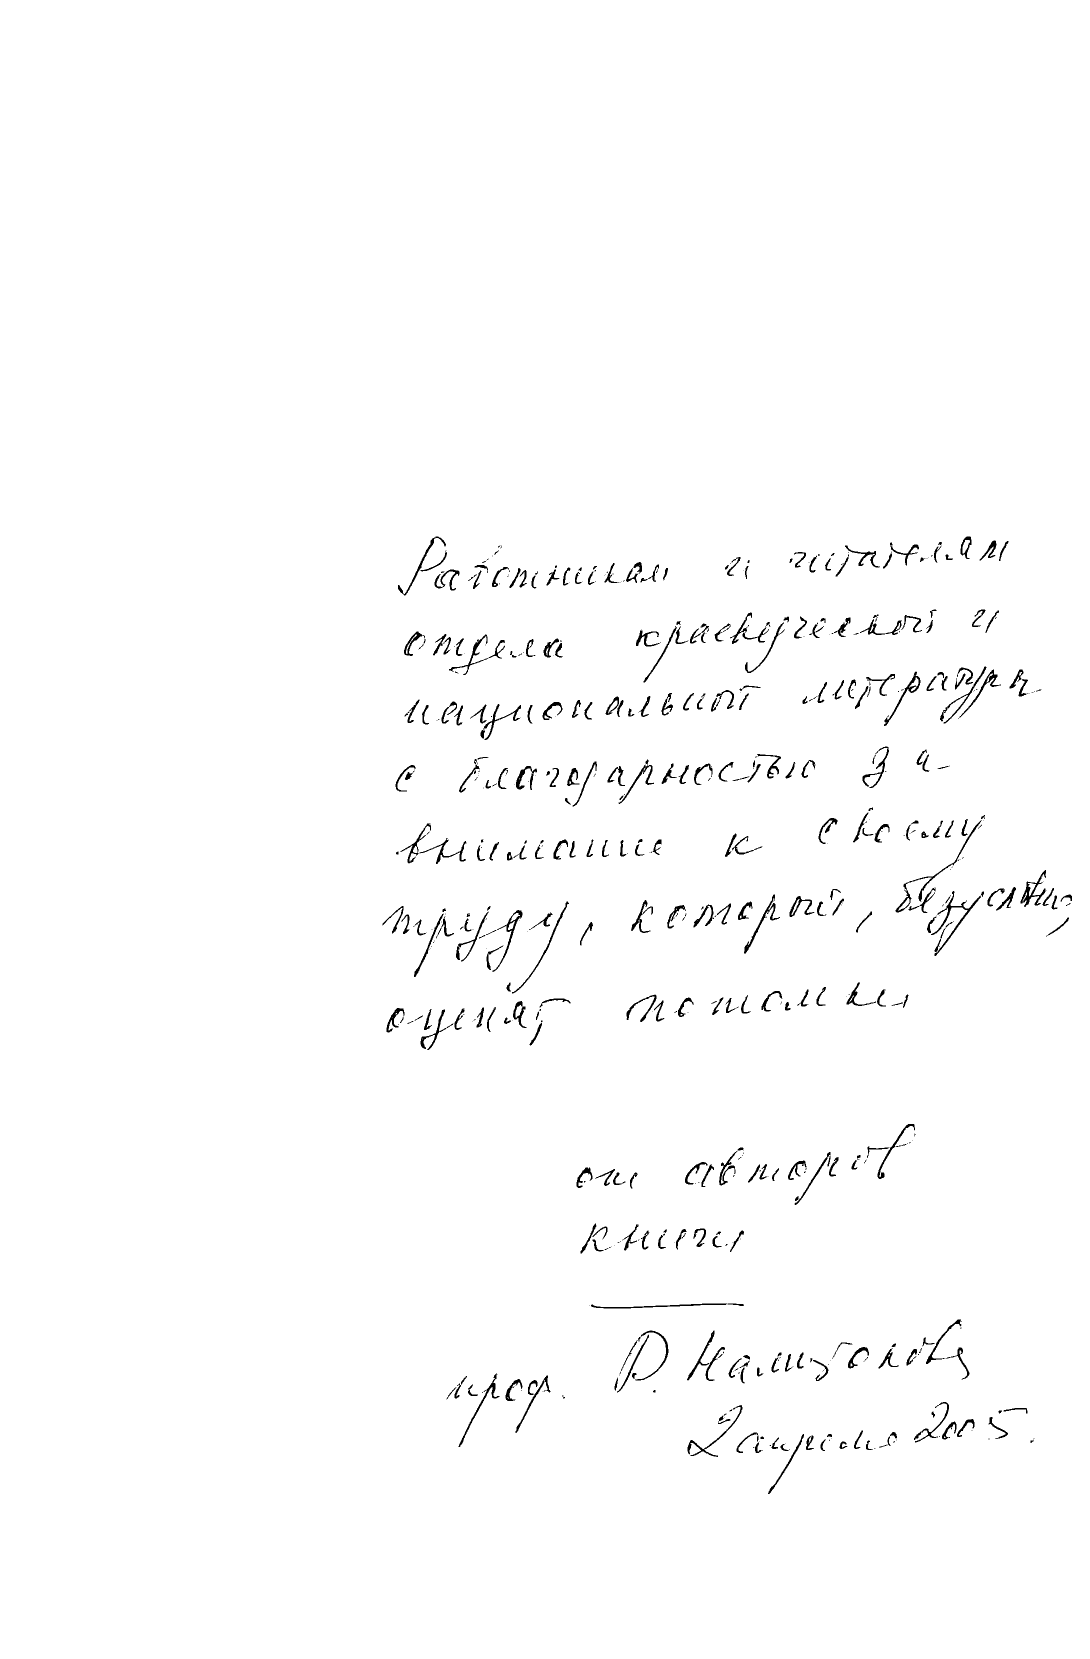 Работникам и читателям
отдела краеведческой и
национальной литературы
с благодарностью за
внимание к своему
труду, который, безусловно,
оценят потомки
от авторов
книги
проф. Р. Намитокова
2 апреля 2005.